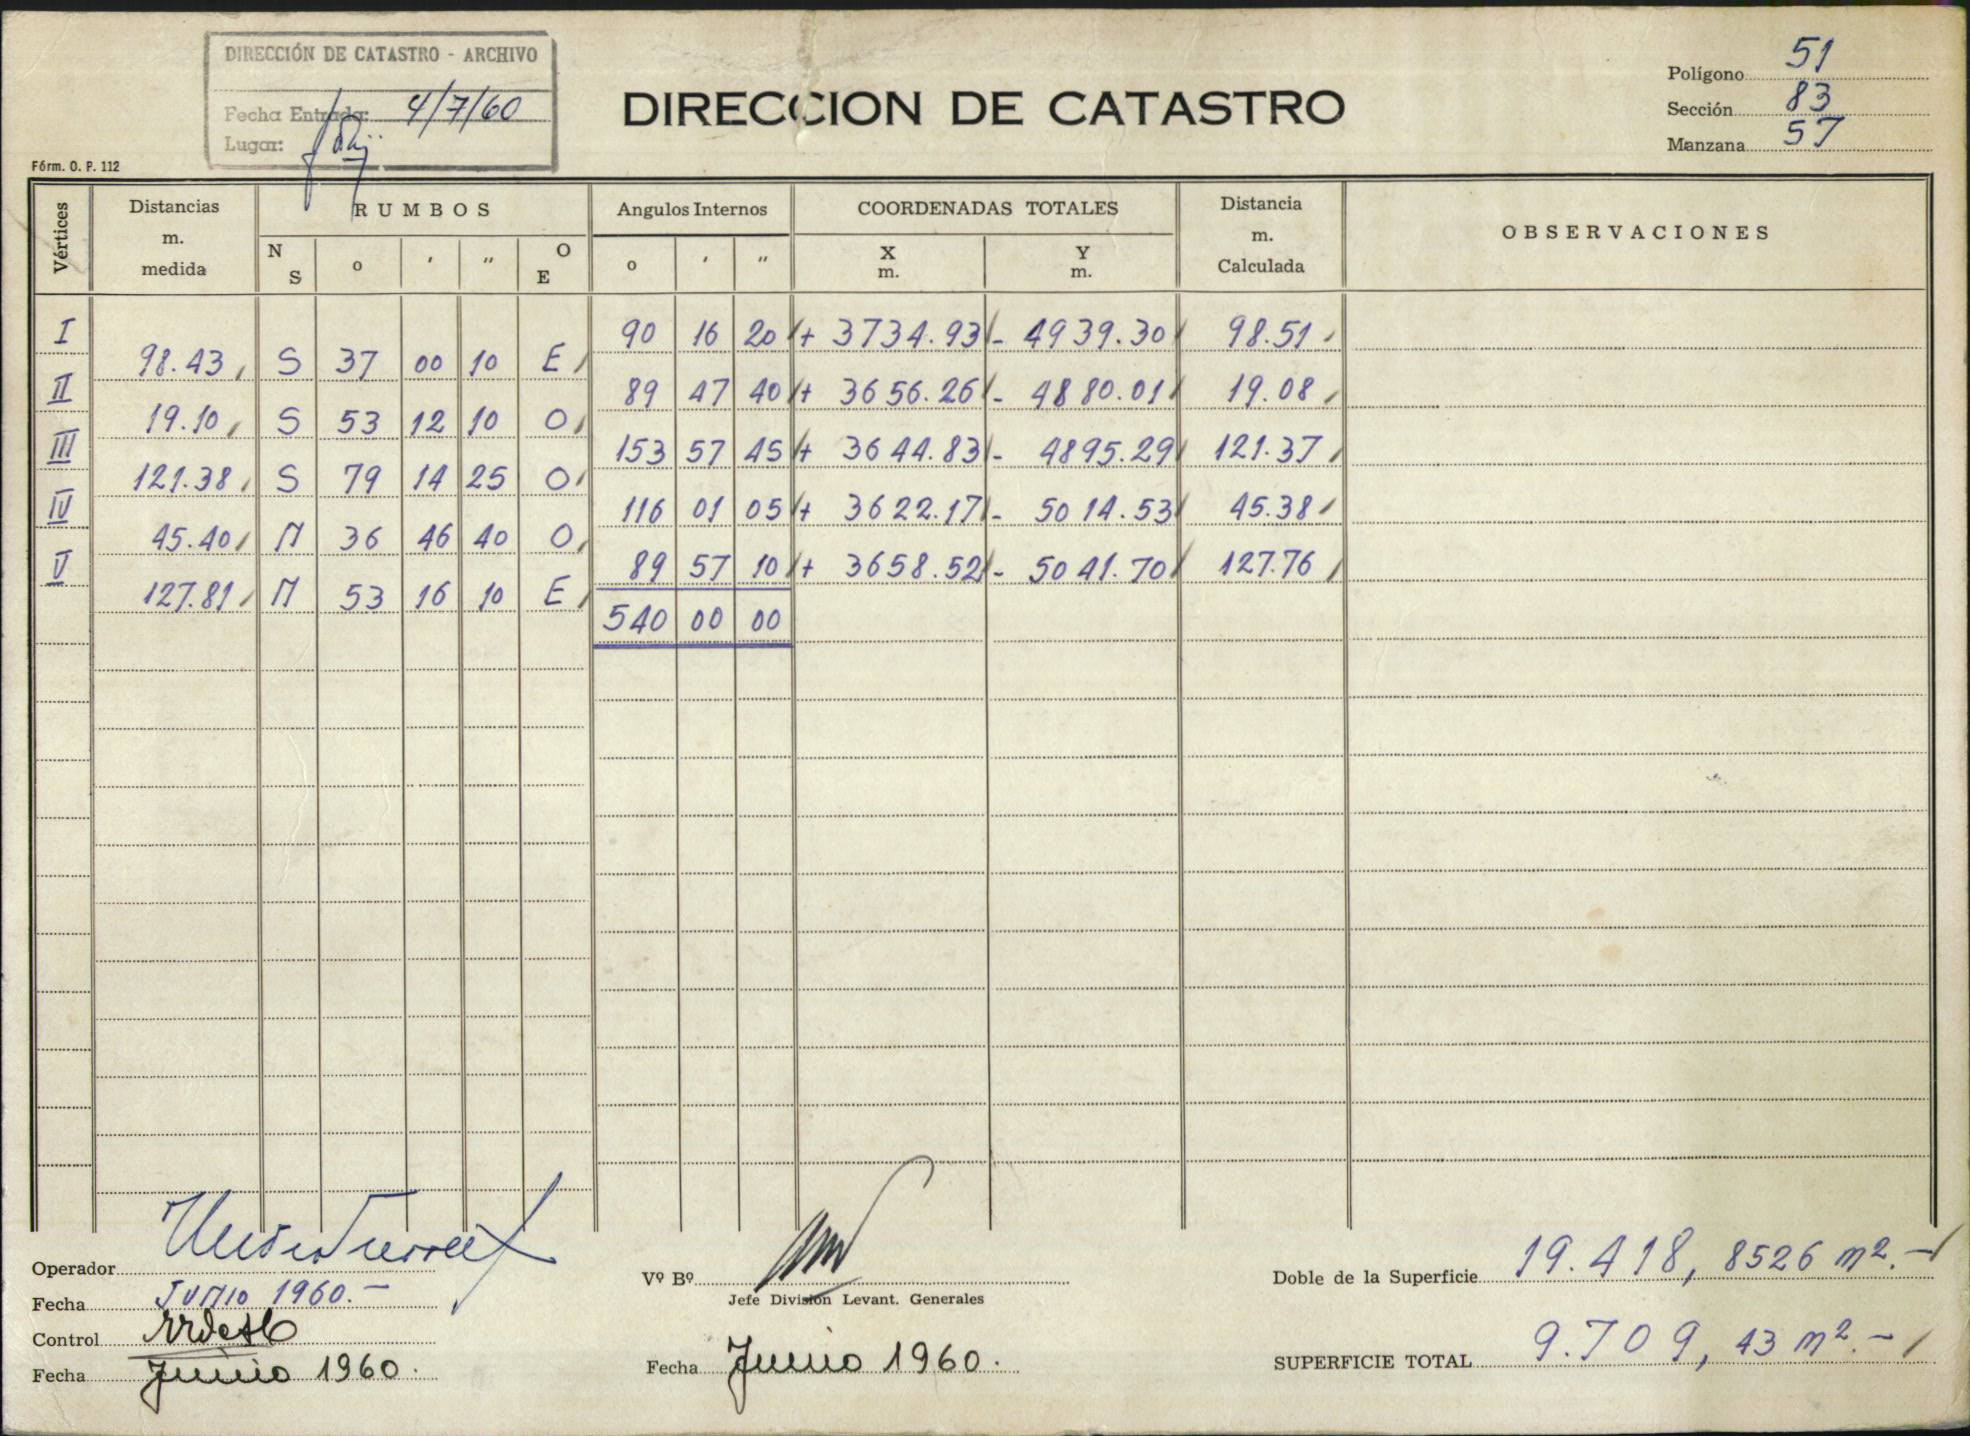 DIRECCIÓN DE CATASTRO - ARCHIVO
Fecha Entrada: 4/7/60
Lugar:
DIRECCION DE CATASTRO
Polígono 51
Sección 83
Manzana 57
Fórm. O. P. 112
Vértices Distancias m. medida RUMBOS Angulos Internos COORDENADAS TOTALES Distancia m. Calculada OBSERVACIONES
N S o ' " O E o ' " X m. Y m.
I 90 16 20 + 3734.93 - 4939.30 98.51
98.43 S 37 00 10 E
II 89 47 40 + 3656.26 - 4880.01 19.08
19.10 S 53 12 10 O
III 153 57 45 + 3644.83 - 4895.29 121.37
121.38 S 79 14 25 O
IV 116 01 05 + 3622.17 - 5014.53 45.38
45.40 N 36 46 40 O
V 89 57 10 + 3658.52 - 5041.70 127.76
127.81 N 53 16 10 E
540 00 00
Operador
Fecha JUNIO 1960.-
Control
Fecha Junio 1960.
Vº Bº
Jefe División Levant. Generales
Fecha Junio 1960.
Doble de la Superficie 19.418,8526 m2.-
SUPERFICIE TOTAL 9.709,43 m2.-